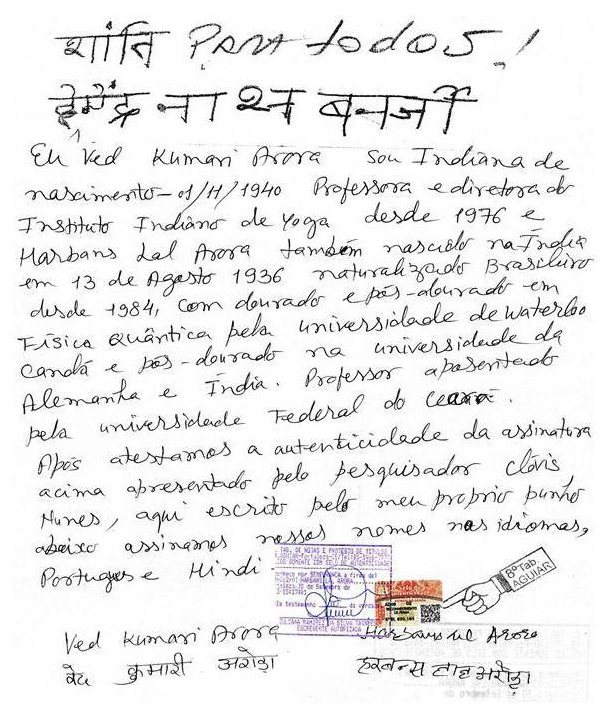 शांति Para todos!
हेमेंद्र नाथ बनर्जी
Eu Ved Kumari Arora sou Indiana de
nascimento - 01/11/1940 Professora e diretora do
Instituto Indiano de Yoga desde 1976 e
Harbans Lal Arora também nascido na Índia
em 13 de Agosto 1936 naturalizado Brasileiro
desde 1984, com dourado e pós-dourado em
Física Quântica pela universidade de Waterloo
Candá e pós-dourado na universidade da
Alemanha e Índia. Professor aposentado
pela universidade Federal do Ceará.
Após atestamos a autenticidade da assinatura
acima apresentado pelo pesquisador Clóvis
Nunes, aqui escrito pelo meu proprio punho
abaixo assinamos nossos nomes nas idiomas,
Portugues e Hindi
TAB. DE NOTAS E PROTESTO DE TITULOS
8º Tab.
AGUIAR
ESCREVENTE AUTORIZADA
Ved Kumari Arora Harbans Lal Arora
वेद कुमारी अरोड़ा हरबन्स लाल अरोड़ा